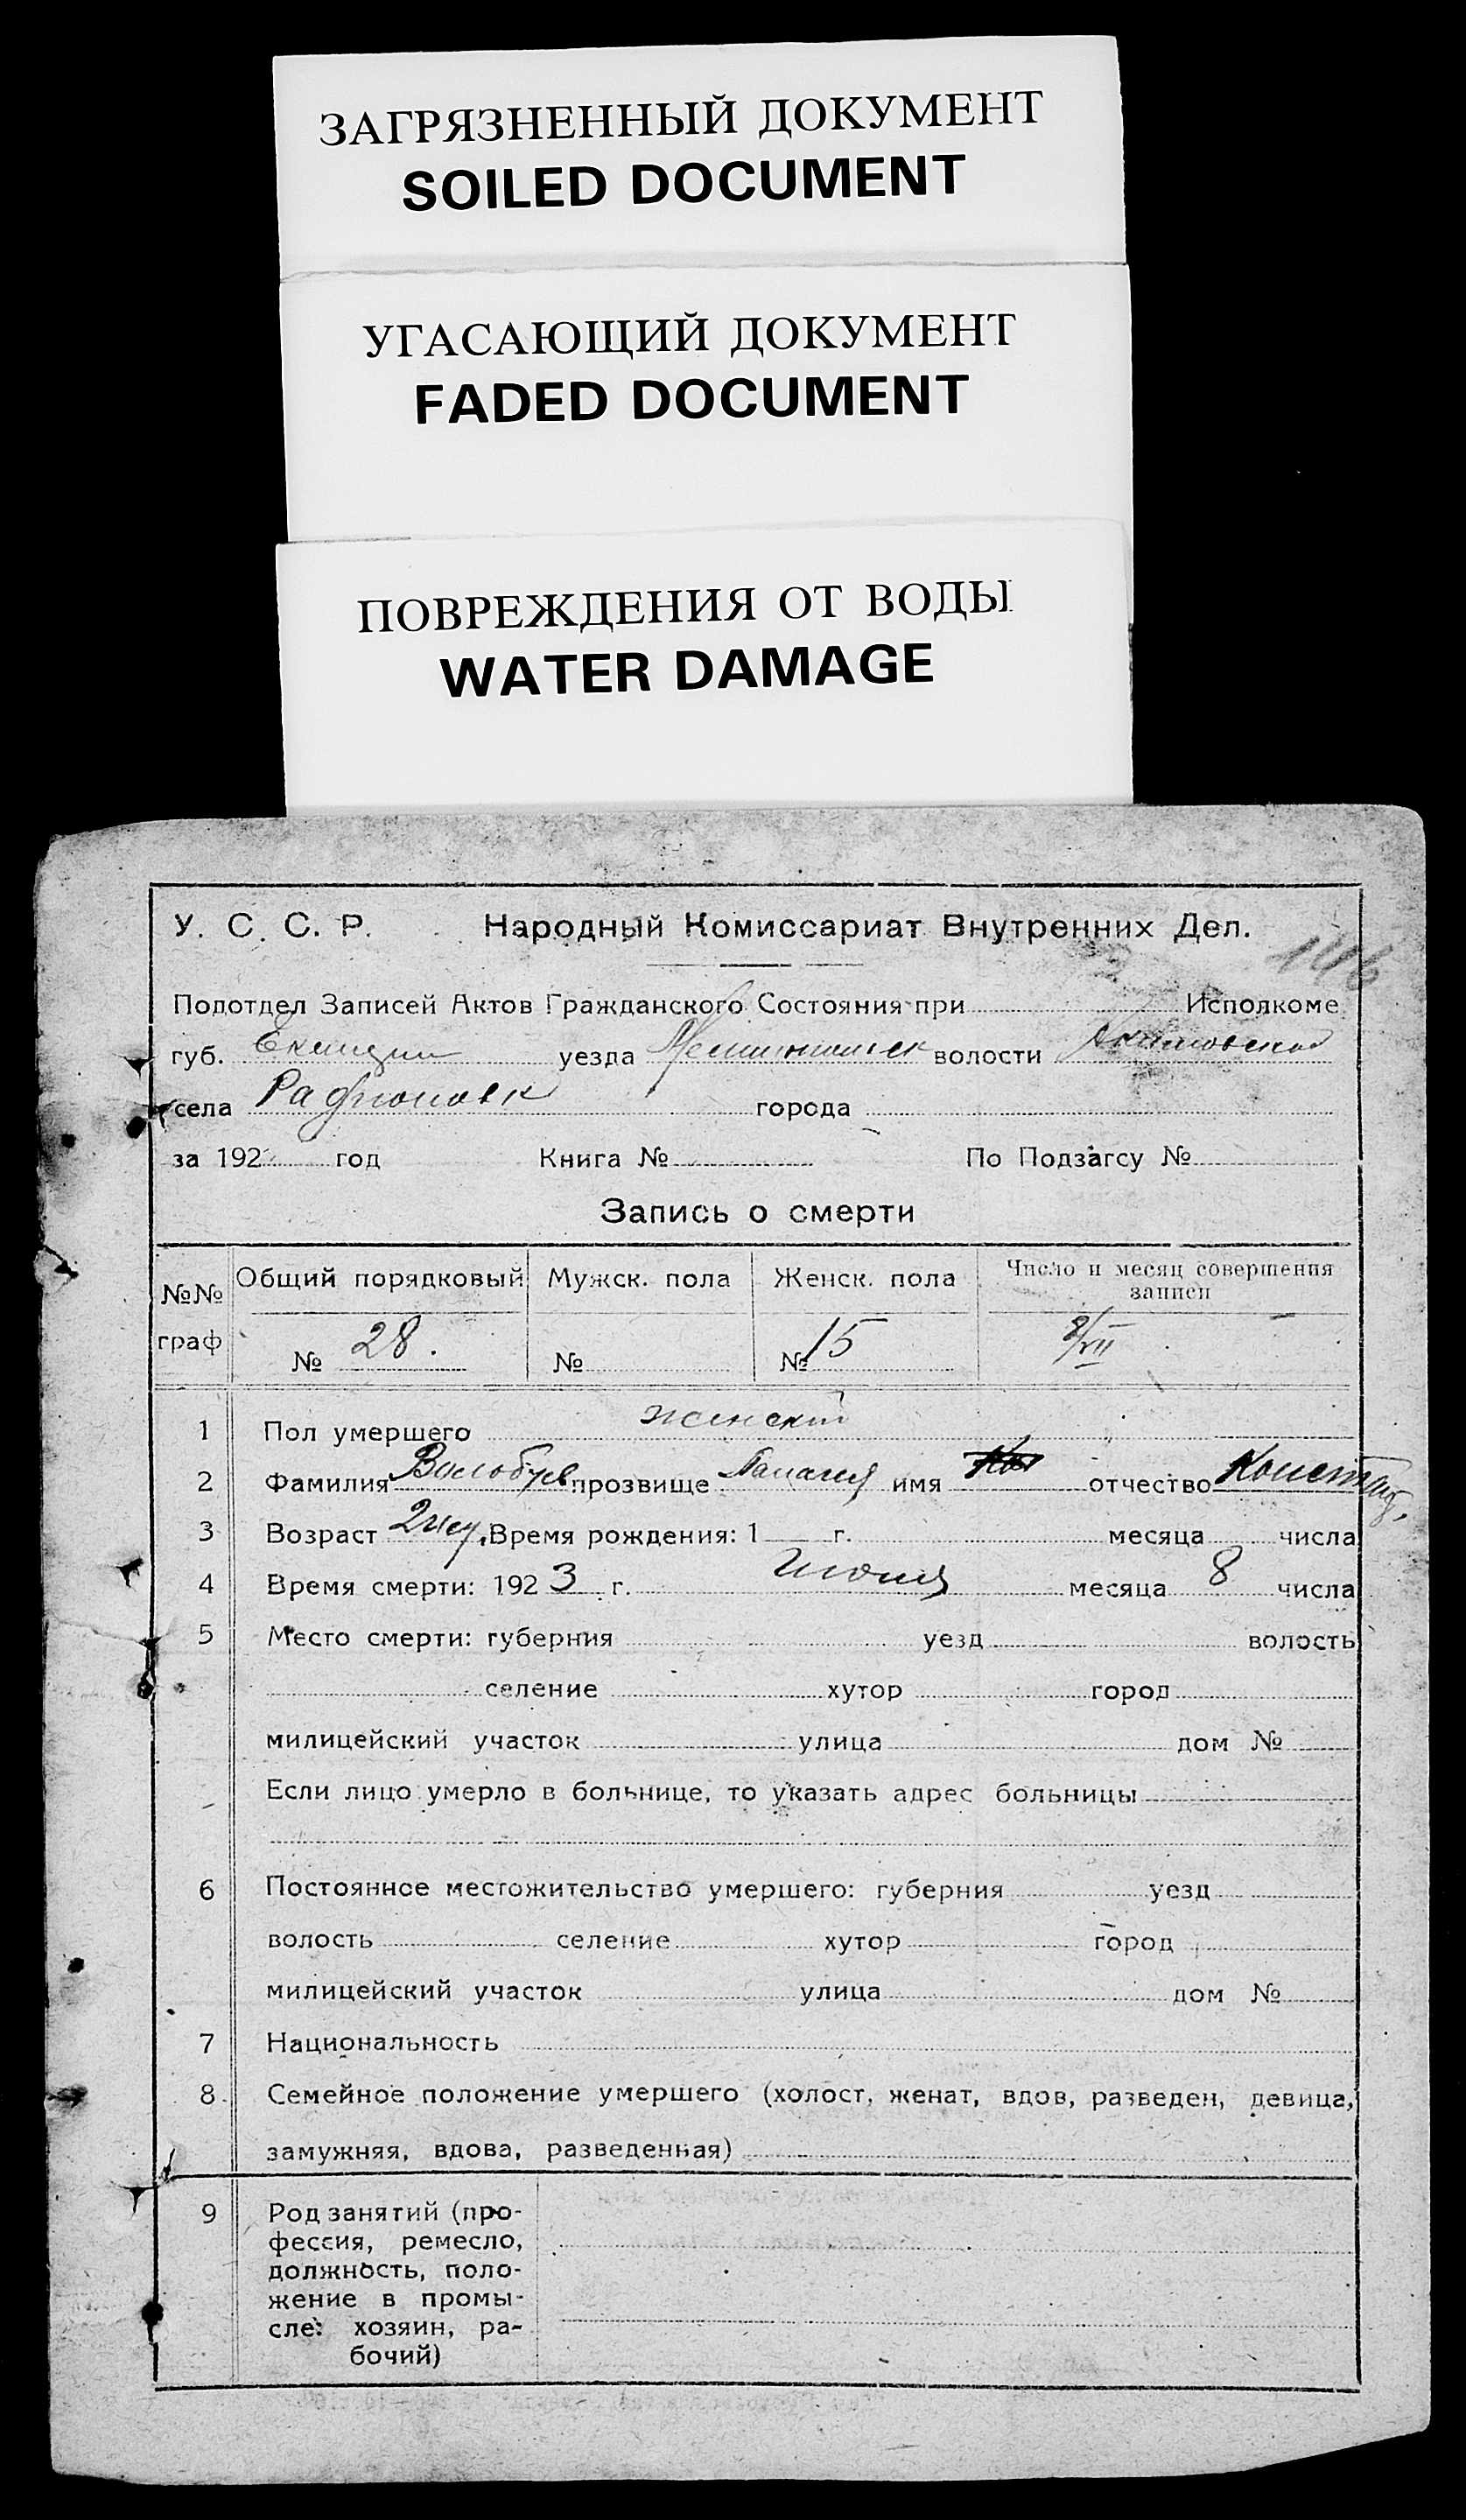 ЗАГРЯЗНЕННЫЙ ДОКУМЕНТ
SOILED DOCUMENT
УГАСАЮЩИЙ ДОКУМЕНТ
FADED DOCUMENT
ПОВРЕЖДЕНИЯ ОТ ВОДЫ
WATER DAMAGE
У. С. С. Р. Народный Комиссариат Внутренних Дел.
Подотдел Записей Актов Гражданского Состояния при Исполкоме
губ. уезда волости
села города
за 192 год Книга № По Подзагсу №
Запись о смерти
№№ граф Общий порядковый Мужск. пола Женск. пола Число и месяц совершения записи
№ 28. № № 15 8/VII
1 Пол умершего женский
2 Фамилия Волобуев прозвище имя отчество Констант.
3 Возраст 2 Время рождения: 1 г. месяца числа
4 Время смерти: 1923 г. месяца 8 числа
5 Место смерти: губерния уезд волость
селение хутор город
милицейский участок улица дом №
Если лицо умерло в больнице, то указать адрес больницы
6 Постоянное местожительство умершего: губерния уезд
волость селение хутор город
милицейский участок улица дом №
7 Национальность
8 Семейное положение умершего (холост, женат, вдов, разведен, девица,
замужняя, вдова, разведенная)
9 Род занятий (про-
фессия, ремесло,
должность, поло-
жение в промы-
сле: хозяин, ра-
бочий)